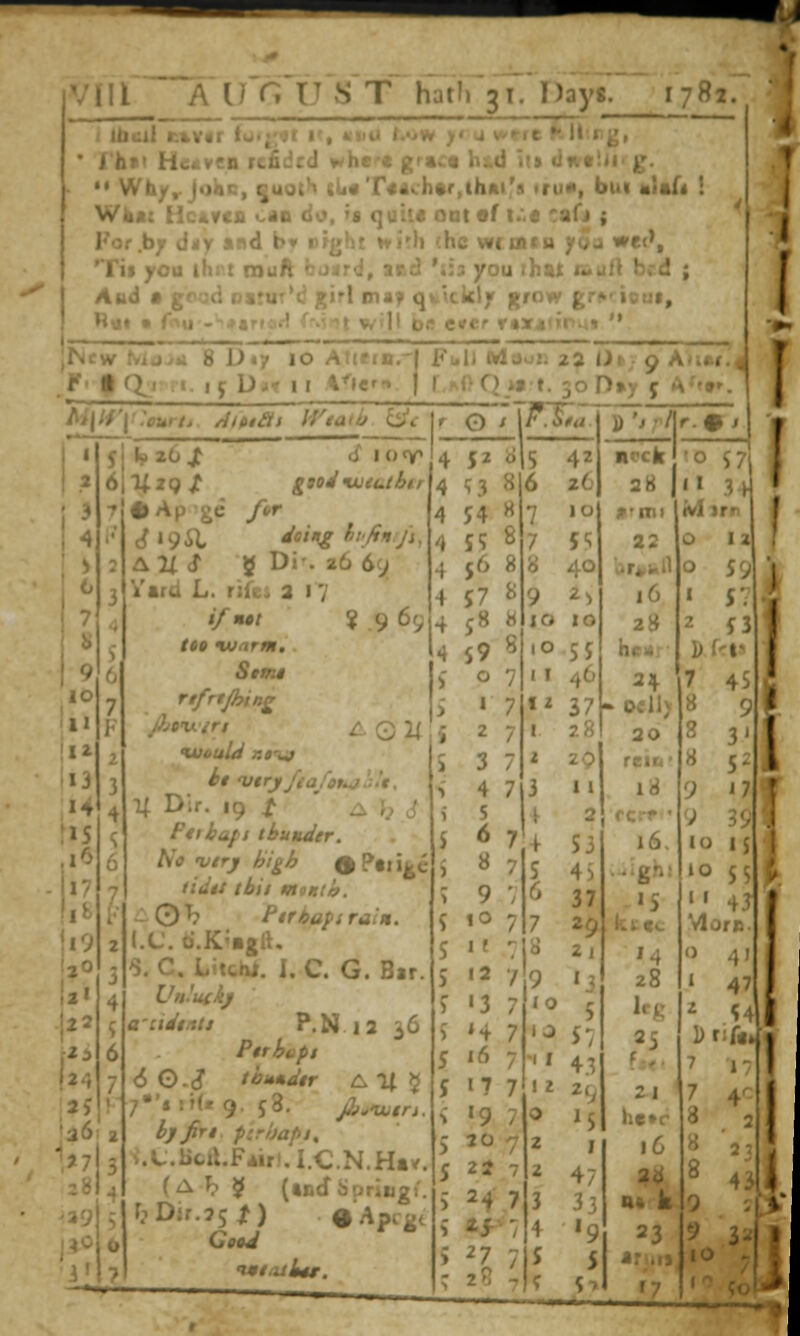 VIII AUGUST hath 31. Days. 1782.
shall never forget it, and how you were
That Heaven resided where grace had its dwelling.
" Why, John, quoth the Teacher, that's true, but alas !
What Heaven can do, is quite out of the ;
For by day and by night with the women you wed,
'Tis you that must board, and 'tis you that must bed ;
And a good natur'd girl may quickly grow gracious,
But a will be ever "
New Moon 8 Day 10 Aftern. | Full Moon 22 Day 9 After.
First Q 15 Day 11 Aftern | Last Quart. 30 Day 5 After.
M|W| Courts Aspects Weath &c r ☉ s F. Sea ☽'s pl r. s
1 5 ♄ 26 ♐ ☌ 10 ♈ 4 52 8 5 42 neck 10 57
2 6 ♃ 29 ♐ good weather 4 53 8 6 26 28 11 34
3 7 Apogé for 4 54 8 7 10 arms Morn
4 F ♂ 19 ♌ doing business, 4 55 8 7 55 22 0 12
5 2 △ ♃ ♂ ☿ Dir. 26 69 4 56 8 8 40 breast 0 59
6 3 Yard L. rises 2 17 4 57 8 9 25 16 1 57
7 4 if not ♀ 9 69 4 58 8 10 10 28 2 53
8 5 too warm. 4 59 8 10 55 heart ☽ sets
9 6 Some 5 0 7 11 46 24 7 45
10 7 refreshing 5 1 7 12 37 belly 8 9
11 F showers △ ☉ ♃ 5 2 7 1 28 20 8 31
12 2 would now 5 3 7 2 20 reins 8 52
13 3 be very seasonable. 5 4 7 3 11 18 9 17
14 4 ♃ Dir. 19 ♐ △ ♄ ♂ 5 5 4 2 9 39
15 5 Perhaps thunder. 5 6 7 4 53 16 10 15
16 6 No very high Perigé 5 8 7 5 45 thigh 10 55
17 7 tides this month. 5 9 7 6 37 15 11 43
18 F △ ☉ ♄ Perhaps rain. 5 10 7 7 29 knees Morn.
19 2 I.C. S.Kingst. 5 11 7 8 21 14 0 41
20 3 S. C. Litchf. I. C. G. Bar. 5 12 7 9 13 28 1 47
21 4 Unlucky 5 13 7 10 5 leg 2 54
22 5 accidents P.N 12 36 5 14 7 10 57 25 ☽ rises
23 6 Perhaps 5 16 7 11 43 feet 7 17
24 7 ☌ ☉ ♂ thunder △ ♃ ☿ 5 17 7 12 29 21 7 40
25 F 7*s rise 9 58. showers. 5 19 7 0 15 head 8 2
26 2 by fire perhaps. 5 20 7 2 1 16 8 23
27 3 S.C. .Fair. I.C.N.Hav. 5 22 7 2 47 28 8 43
28 4 (△ ♄ ☿ (and Springf. 5 24 7 3 33 neck 9
29 5 ♄ Dir. 25 ♐) Apogé 5 25 7 4 19 23 9 32
30 6 Good 5 27 7 5 5 arms 10 7
31 7 weather. 5 28 7 5 17 10 50